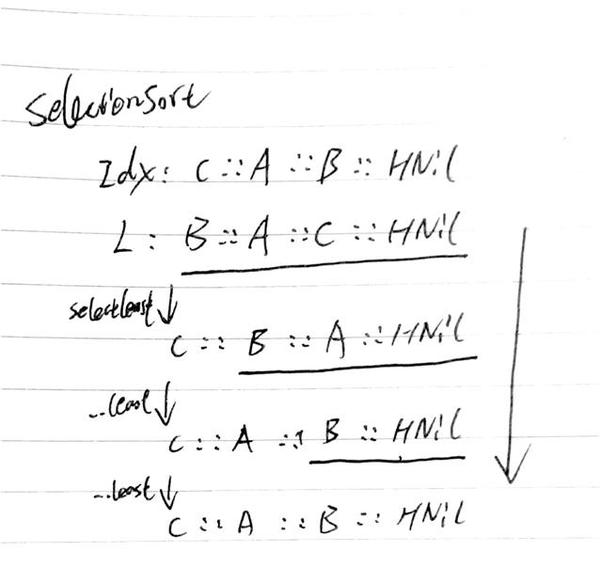 SelectionSort
Idx: C :: A :: B :: HNil
L : B :: A :: C :: HNil
selectLeast
C :: B :: A :: HNil
...least
C :: A :: B :: HNil
...least
C :: A :: B :: HNil